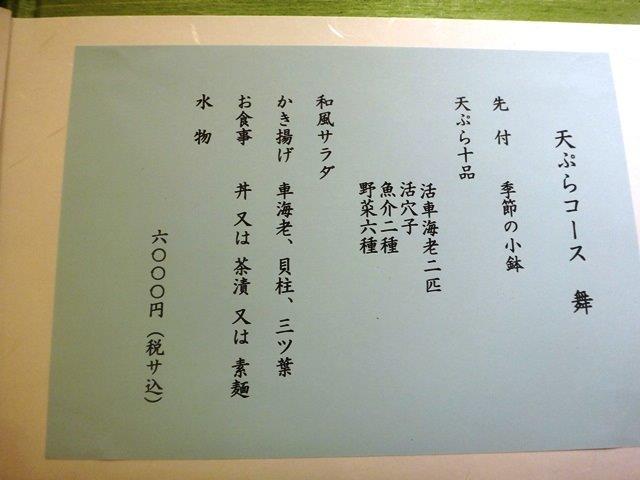 天ぷらコース　舞
先　付　季節の小鉢
天ぷら十品
活車海老二匹
活穴子
魚介二種
野菜六種
和風サラダ
かき揚げ　車海老、貝柱、三ツ葉
お食事　丼 又は 茶漬 又は 素麺
水　物
六〇〇〇円（税サ込）